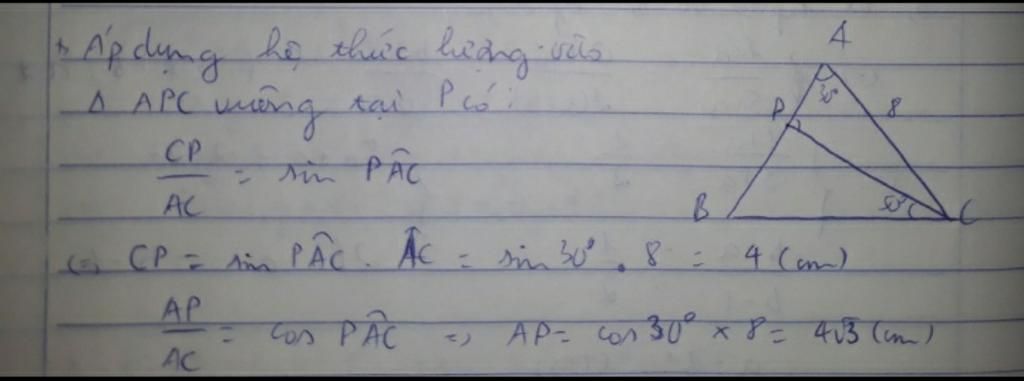 Áp dụng hệ thức lượng vào
Δ APC vuông tại P có:
CP/AC = sin PÂC
<=> CP = sin PÂC . ÂC = sin 30° . 8 = 4 (cm)
AP/AC = cos PÂC => AP = cos 30° × 8 = 4√3 (cm)
A
30°
P
8
B
C